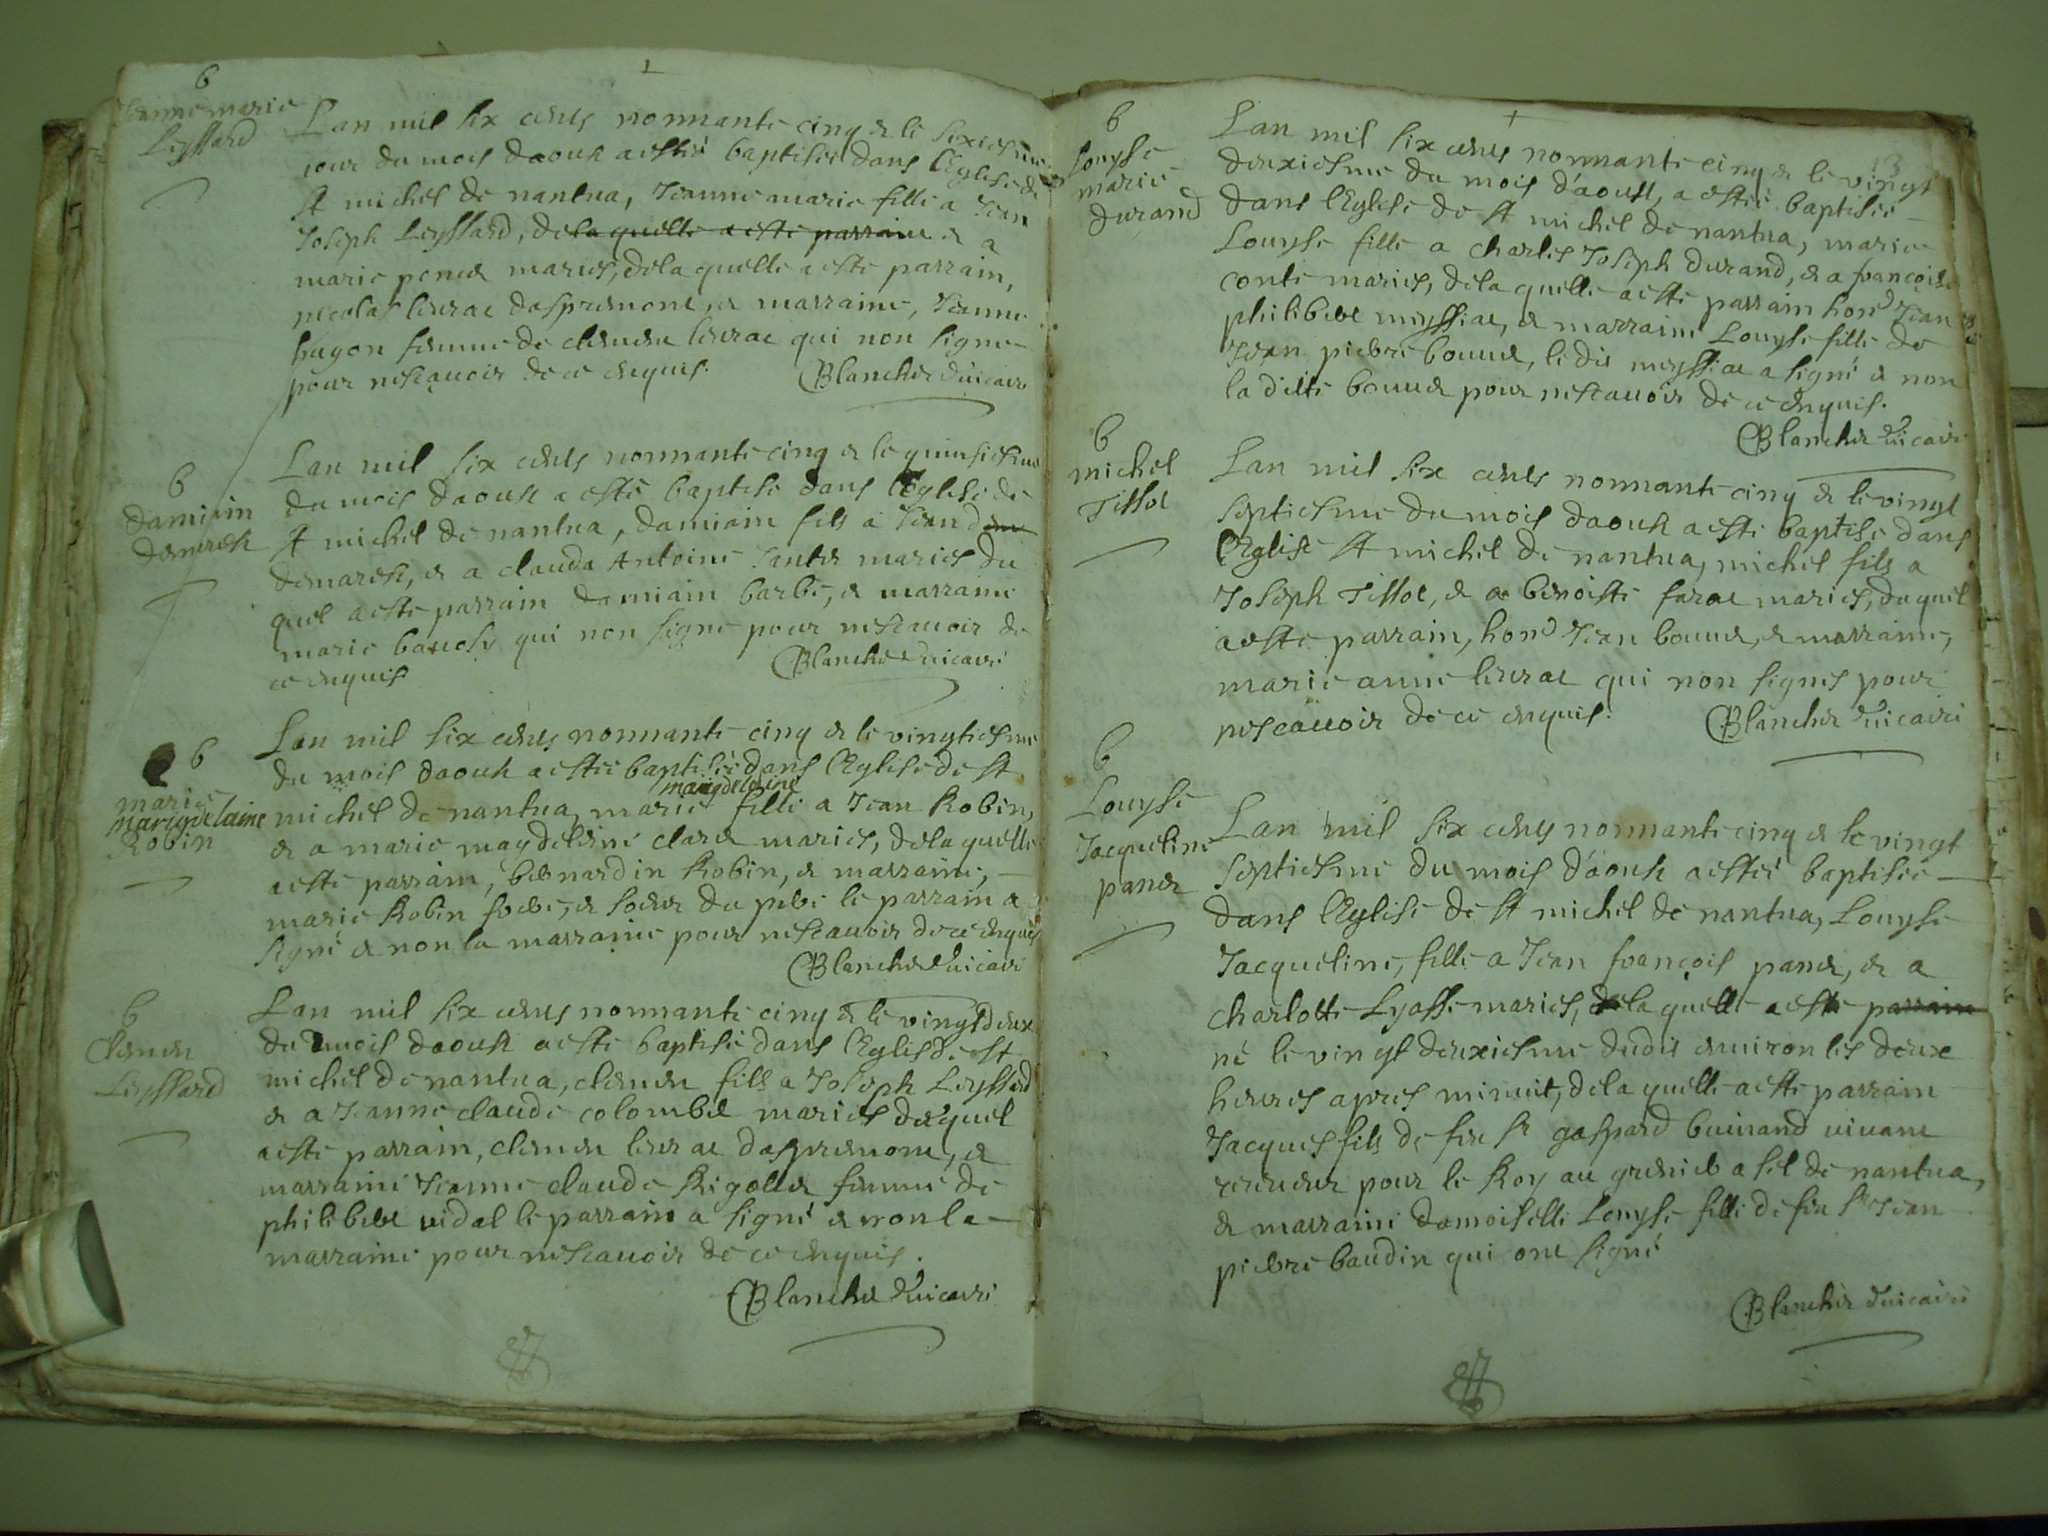 b
Jeanne marie
Leyssard
Lan mil six cents nonnante cinq & le sixiesme
jour du mois daoust a estéé baptisée dans l'Eglise de
St michel de nantua, Jeanne marie fille a Jean
Joseph Leyssard, de la quelle a este parrain & a
marie mariés, dela quelle a este parrain,
nicolas leurat daspremont, & marraine, Jeanne
hugon femme de clement leurat qui non signe
pour nescauoir de ce enquis. Blanchet vicaire
b
damiain
demarest
Lan mil six cents nonnante cinq & le quinsiesme
du mois daoust a esté baptisé dans l'Eglise de
St michel de nantua, damiain fils a Jean
demarest, & a clauda Antoine mariés du
quel a este parrain damiain barbe, & marraine
marie qui non signé pour nescauoir de
ce enquis Blanchet vicaire
b
marie
marigdelaine
Robin
Lan mil six cents nonnante cinq & le vingtiesme
du mois daoust a estéé baptiséé dans l'Eglise de St
marigdeleine
michel de nantua, marie fille a Jean Robin,
& a marie magdeleine claret mariés, dela quelle
a este parrain, bernardin Robin, & marraine,
marie Robin frere, & soeur du pere le parrain a
signé & non la marraine pour nescauoir de ce enquis
Blanchet vicaire
b
clement
Leyssard
Lan mil six cents nonnante cinq & le vingtdeux
du mois daoust a este baptisé dans l'Eglise de St
michel de nantua, clement fils a Joseph Leyssard
& a Jeanne claude colombet mariés duquel
a este parrain, clement leurat daspremont, &
marraine Jeanne claude Rigollet femme de
philibert vidal le parrain a signé & non la
marraine pour nescauoir de ce enquis.
Blanchet vicaire
b
Louyse
marie
durand
Lan mil six cents nonnante cinq & le vingt
deuxiesme du mois d'aoust, a estéé baptiséé
dans l'Eglise de St michel de nantua, marie
Louyse fille a charles Joseph durand, & a francoise
conte mariés, dela quelle a este parrain hond Jean
philibert meyssiat, & marraine Louyse fille de
Jean pierre bouuet, le dit meyssiat a signé & non
la ditte bouuet pour nescauoir de ce enquis.
Blanchet vicaire
b
michel
Tissot
Lan mil six cents nonnante cinq & le vingt
septiesme du mois daoust a esté baptisé dans
l'Eglise St michel de nantua, michel fils a
Joseph Tissot, & a benoiste mariés, duquel
a este parrain, hond Jean bouuet, & marraine,
marie anne leurat qui non signés pour
nescauoir de ce enquis. Blanchet vicaire
b
Louyse
Jacqueline
panet
Lan mil six cents nonnante cinq & le vingt
septiesme du mois d'aoust a estéé baptisée
dans l'Eglise de St michel de nantua, Louyse
Jacqueline, fille a Jean françois panet, & a
charlotte Lyasse mariés, de la quelle a este parrain
né le vingt deuxiesme dudit enuiron les deux
heures apres minuit, dela quelle a este parrain
Jacques fils de feu Sr gaspard buinand viuant
receueur pour le Roy au grenier a sel de nantua,
& marraine damoiselle Louyse fille de feu Sr Jean
pierre baudin qui ont signé
Blanchet vicaire